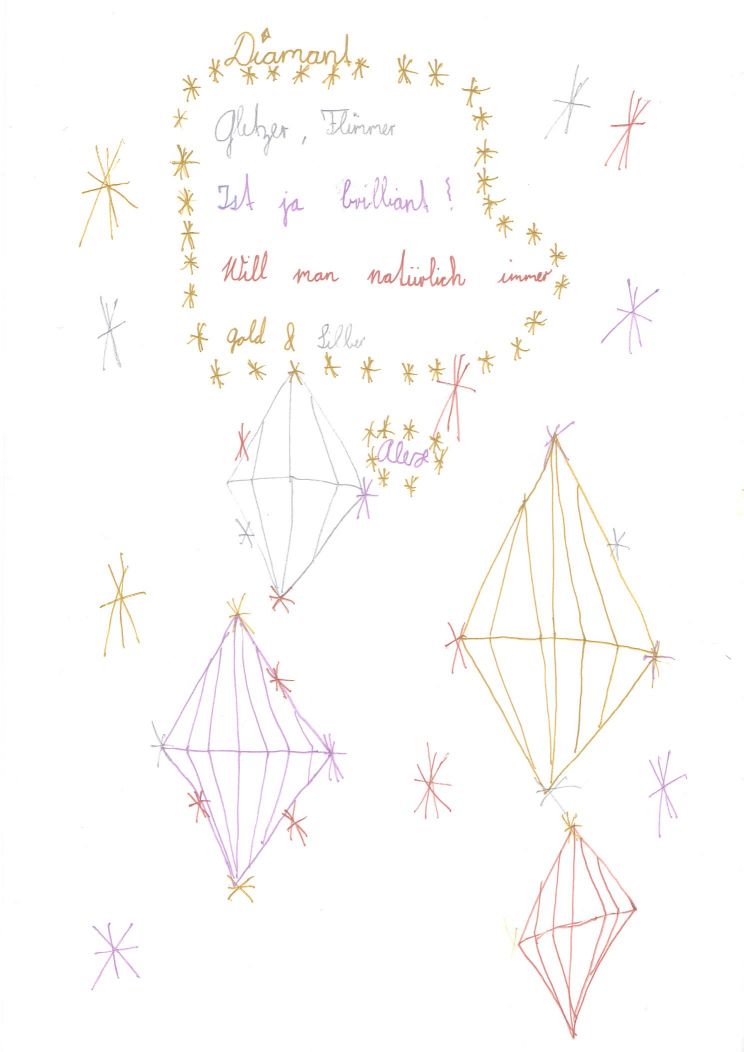 Diamant
Glitzer, Flimmer
Ist ja brilliant!
Will man natürlich immer
gold & Silber